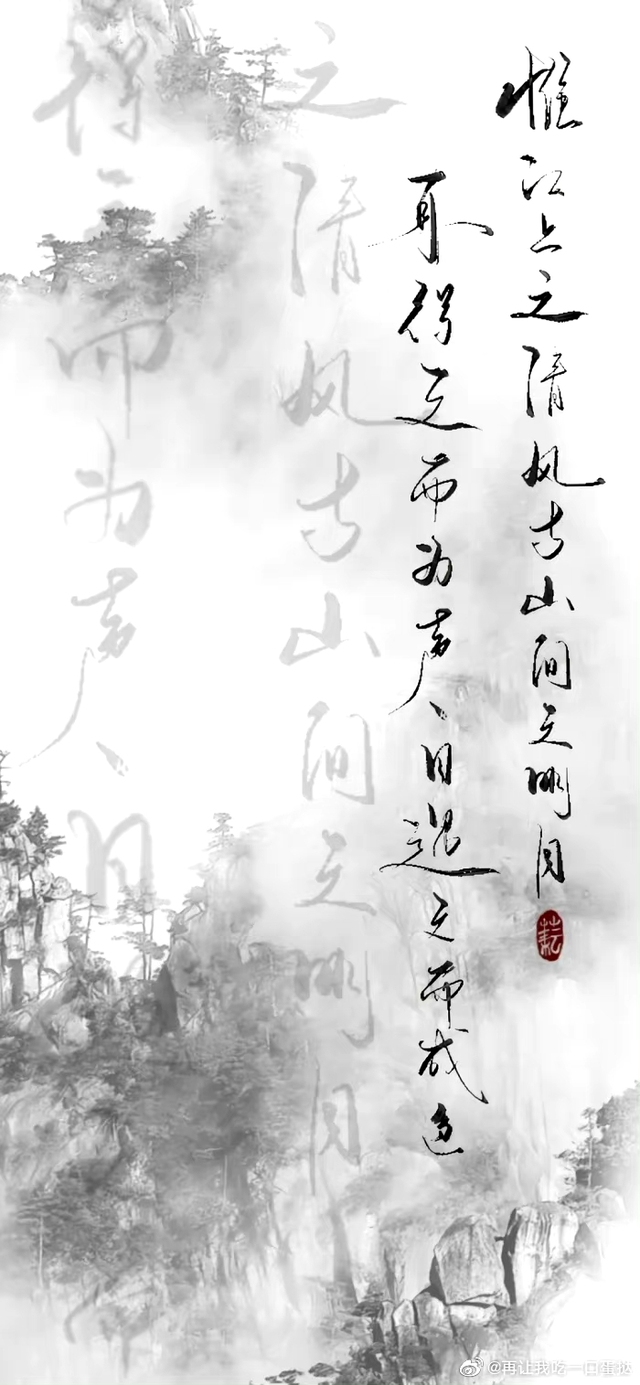 惟江上之清风与山间之明月
耳得之而为声、目遇之而成色
之清风与山间之明月
得之而为声、目
@再让我吃一口蛋挞